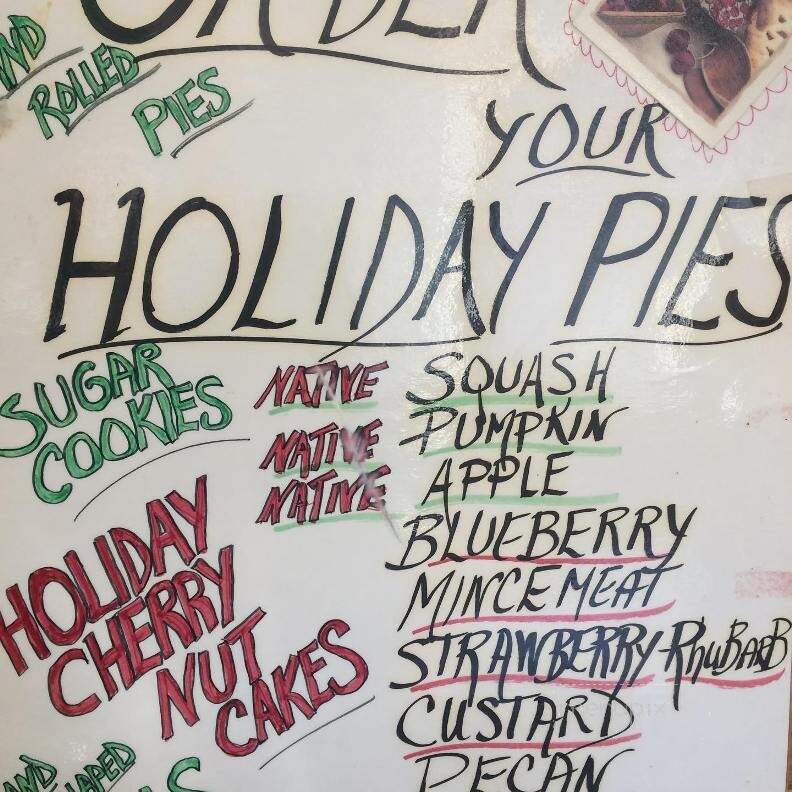 ORDER
ROLLED
PIES
YOUR
HOLIDAY PIES
SUGAR
COOKIES
NATIVE SQUASH
NATIVE PUMPKIN
NATIVE APPLE
BLUEBERRY
MINCEMEAT
STRAWBERRY-RHUBARB
CUSTARD
PECAN
HOLIDAY
CHERRY
NUT
CAKES